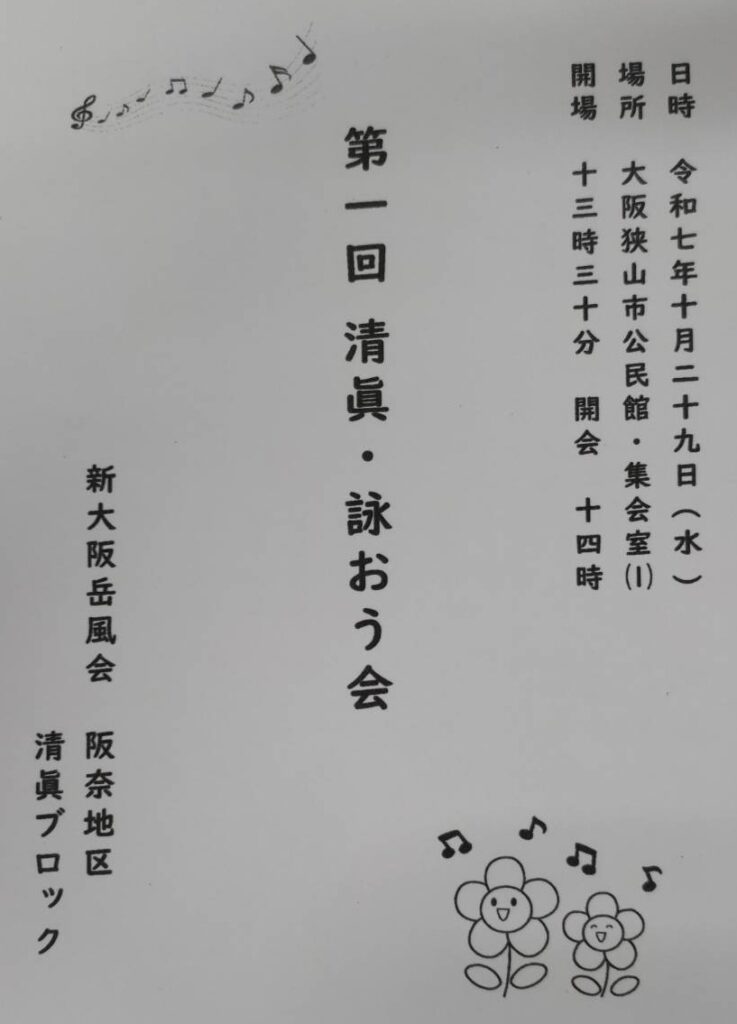 日時 令和七年十月二十九日(水)
場所 大阪狭山市公民館・集会室(1)
開場 十三時三十分 開会 十四時
第一回 清眞・詠おう会
新大阪岳風会 阪奈地区
清眞ブロック